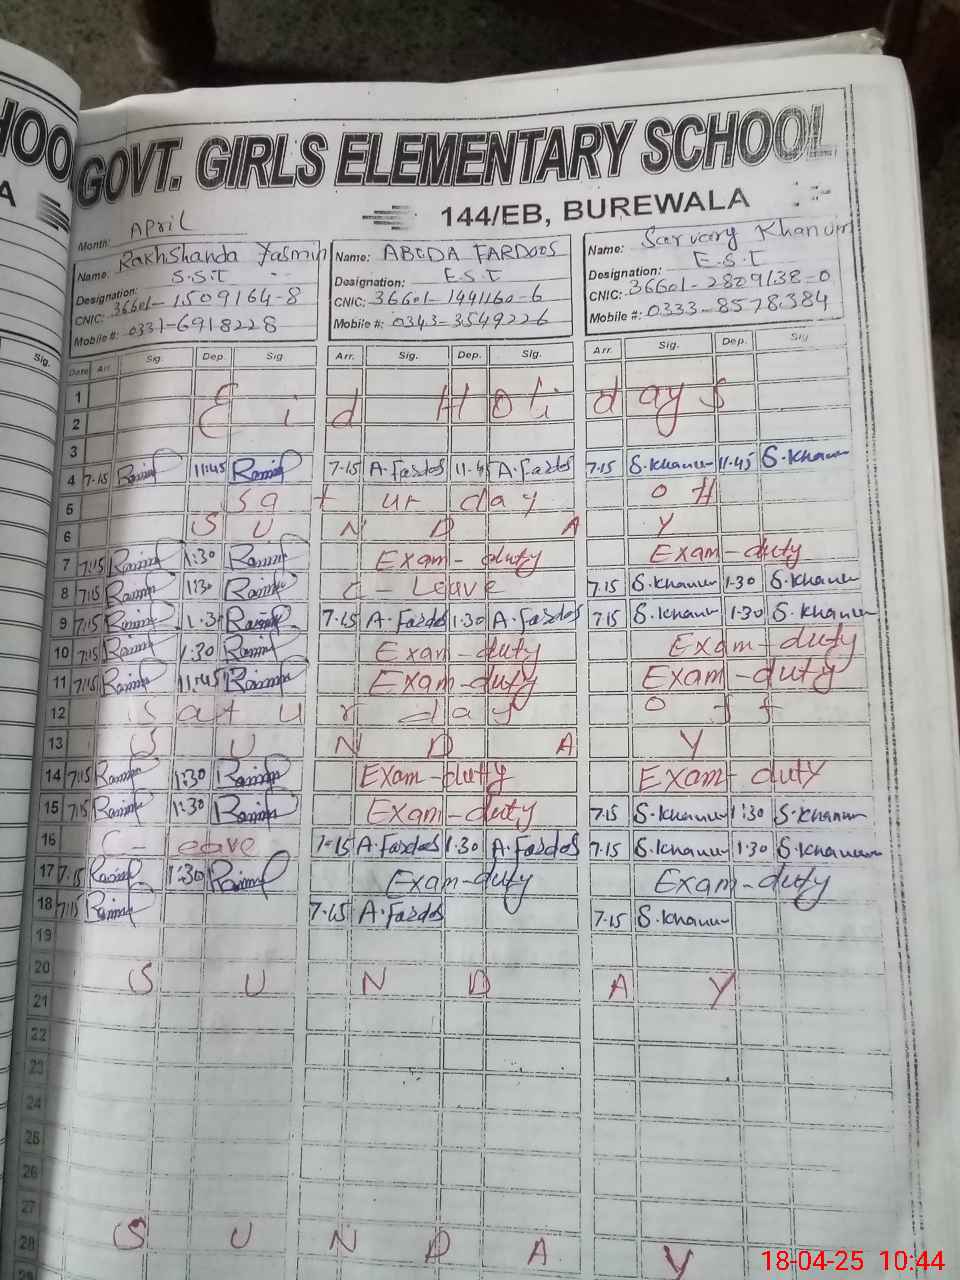 GOVT. GIRLS ELEMENTARY SCHOOL
144/EB, BUREWALA
Month: April
Name: Rakhshanda Yasmin
Designation: S.S.T
CNIC: 36601-1509164-8
Mobile #: 0331-6918228
Name: ABEDA FARDOOS
Designation: E.S.T
CNIC: 36601-1441160-6
Mobile #: 0343-3549226
Name: Sarvary Khanum
Designation: E.S.T
CNIC: 36601-2809138-0
Mobile #: 0333-8578384
Date Arr. Sig. Dep. Sig Arr. Sig. Dep. Sig. Arr. Sig. Dep. Sig
1
2 Eid Holidays
3
4 7-15 11:45 7-15 A.Fardos 11-45 A.Fardos 7-15 S.Khanum 11-45 S.Khanum
5 Saturday off
6 SUNDAY
7 7:15 1:30 Exam-duty Exam-duty
8 7:15 1:30 C-Leave 7-15 S.Khanum 1-30 S.Khanum
9 7:15 1:30 7-15 A.Fardos 1-30 A.Fardos 7-15 S.Khanum 1-30 S.Khanum
10 7:15 1:30 Exam-duty Exam-duty
11 7:15 11:45 Exam-duty Exam-duty
12 Saturday off
13 SUNDAY
14 7:15 1:30 Exam-duty Exam-duty
15 7:15 1:30 Exam-duty 7-15 S.Khanum 1:30 S.Khanum
16 C-Leave 7-15 A.Fardos 1-30 A.Fardos 7-15 S.Khanum 1-30 S.Khanum
17 7:15 1:30 Exam-duty Exam-duty
18 7:15 7-15 A.Fardos 7-15 S.Khanum
19
20 SUNDAY
21
22
23
24
25
26
27
28 SUNDAY
18-04-25 10:44